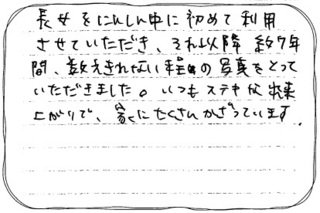 長女をにんしん中に初めて利用
させていただき、それ以降 約7年
間、数えきれない程の写真をとって
いただきました。いつもステキな出来
上がりで、家にたくさんかざっています